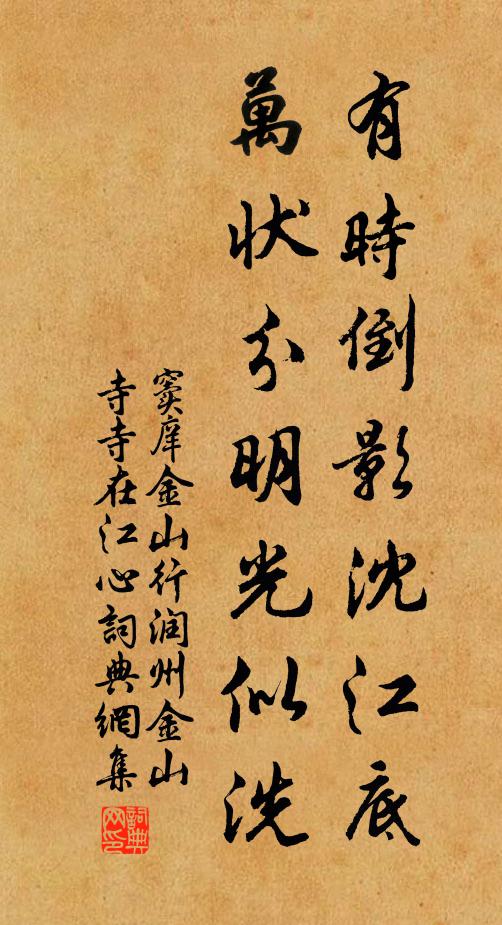 有時倒影沈江底
萬狀分明光似洗
窦庠金山行润州金山
寺寺在江心詞典網集
詞典
网印